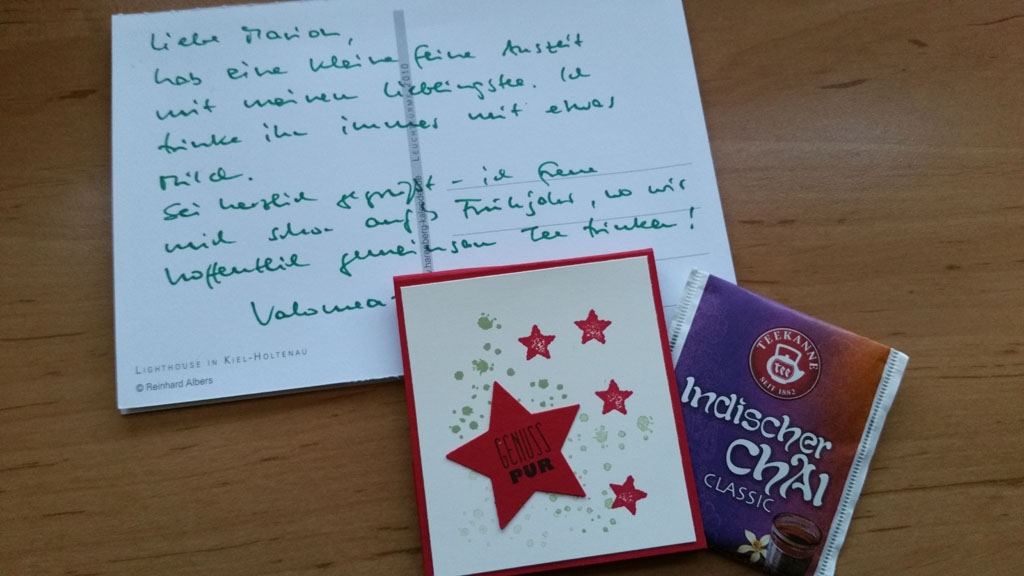 Liebe Marion,
hab eine kleine feine Auszeit
mit meinem Lieblingstee. Ich
trinke ihn immer mit etwas
Milch.
Sei herzlich gegrüßt - ich freue
mich schon aufs Frühjahr, wo wir
hoffentlich gemeinsam Tee trinken!
LIGHTHOUSE IN KIEL-HOLTENAU
© Reinhard Albers
GENUSS
PUR
TEEKANNE
tee
SEIT 1882
Indischer
Chai
CLASSIC